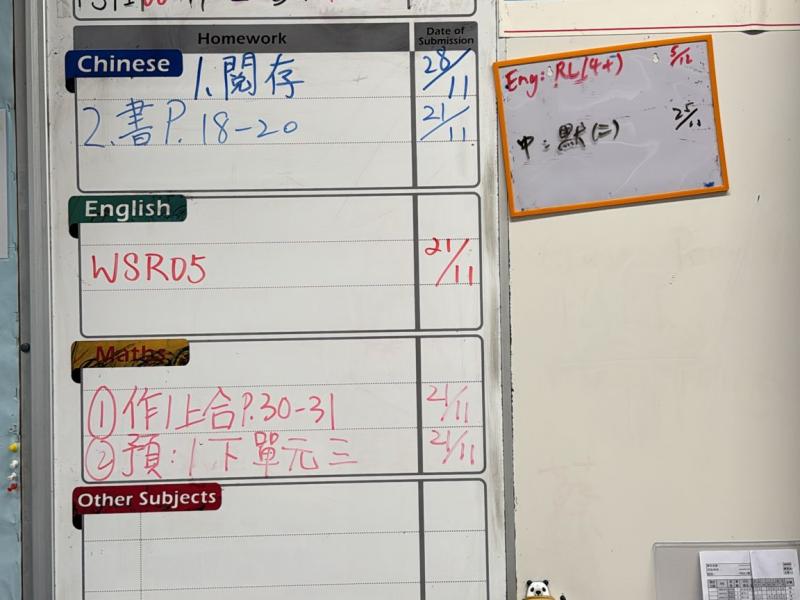 Homework
Date of Submission
Chinese
1. 閱存 28/11
2. 書P. 18-20 21/11
English
WSR05 21/11
Maths
① 作1上合P.30-31 21/11
② 預:1下單元三 21/11
Other Subjects
Eng: RL(4+) 5/12
中:默(二) 25/11